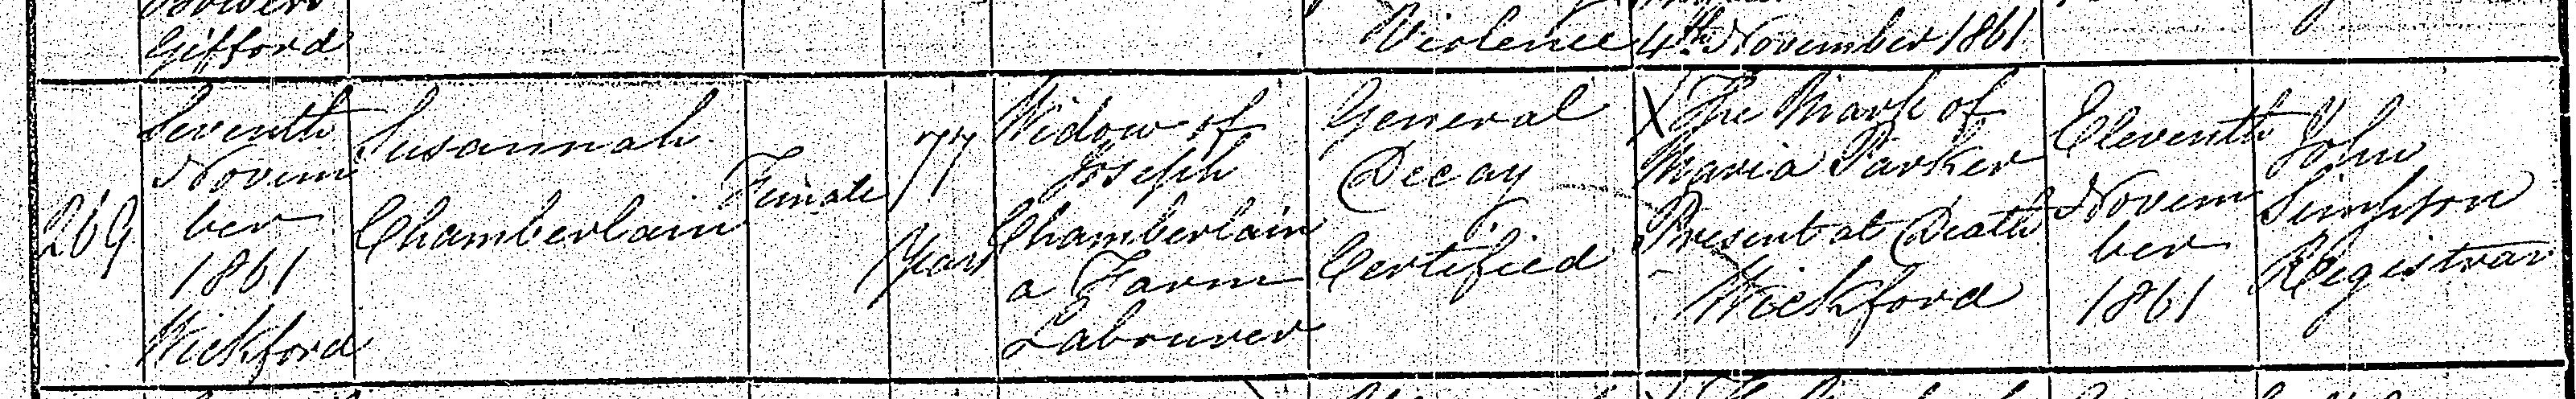 Gifford
Violence
4th November 1861
269
Seventh
Novem
ber
1861
Wickford
Susannah
Chamberlain
Female
77
Years
Widow of
Joseph
Chamberlain
a Farm
Labourer
General
Decay
Certified
X The Mark of
Maria Parker
Present at Death
Wickford
Eleventh
Novem
ber
1861
John
Simpson
Registrar